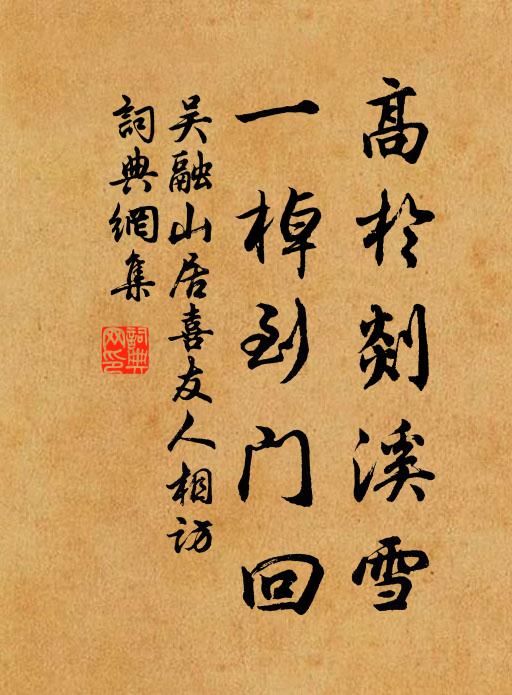 高於剡溪雪
一棹到门回
吴融山居喜友人相访
詞典網集
詞典网印